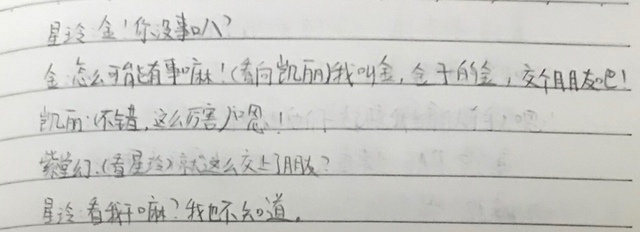 星玲:金!你没事吧?
金:怎么可能有事嘛!(看向凯丽)我叫金,金子的金,交个朋友吧!
凯丽:(不错,这么厉害)嗯!
紫堂幻:(看星玲)就这么交上了朋友?
星玲:看我干嘛?我也不知道。